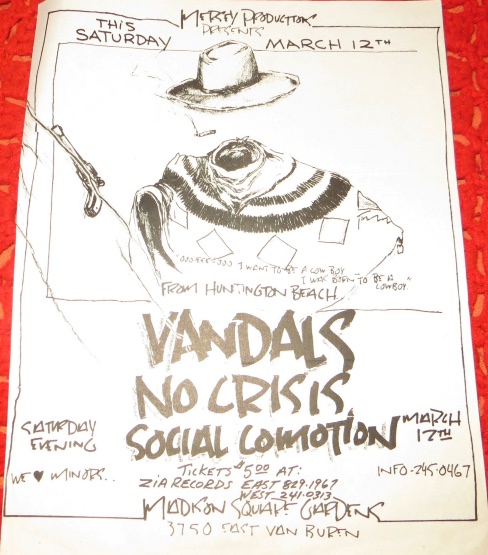 MERSEY PRODUCTIONS
PRESENTS
THIS
SATURDAY
MARCH 12TH
I WANT TO BE A COWBOY
I WAS BORN TO BE A
COWBOY."
FROM HUNTINGTON BEACH
VANDALS
NO CRISIS
SOCIAL COMOTION
SATURDAY
EVENING
MARCH
12TH
WE ♥ MINORS..
TICKETS $5.00 AT:
ZIA RECORDS EAST 829-1967
WEST 241-0313
INFO-245-0467
MADISON SQUARE GARDENS
3750 EAST VAN BUREN